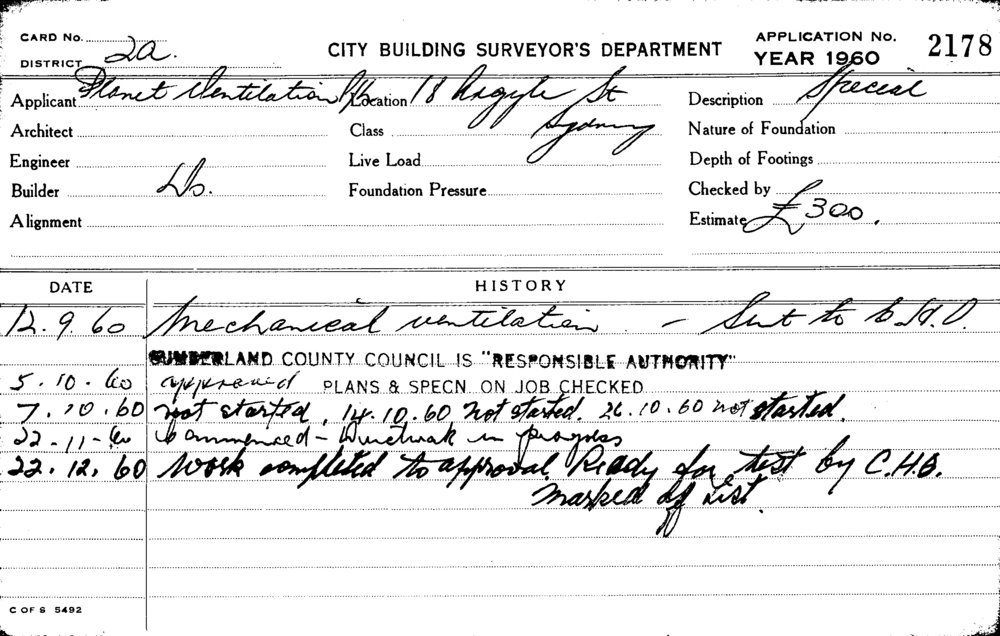 CARD No.
DISTRICT 2a.
CITY BUILDING SURVEYOR'S DEPARTMENT
APPLICATION No. 2178
YEAR 1960
Applicant Planet Ventilation P/L Location 18 Argyle St Description Special
Architect Class Sydney Nature of Foundation
Engineer Live Load Depth of Footings
Builder Do. Foundation Pressure Checked by
Alignment Estimate £300.
DATE HISTORY
12.9.60 Mechanical ventilation - Sent to C.H.O.
CUMBERLAND COUNTY COUNCIL IS "RESPONSIBLE AUTHORITY"
5.10.60 approved PLANS & SPECN. ON JOB CHECKED
7.10.60 not started, 14.10.60 Not started. 26.10.60 not started.
22-11-60 Commenced - Ductwork in progress
22.12.60 Work completed to approval. Ready for test by C.H.O.
Marked off List.
C OF S 5492